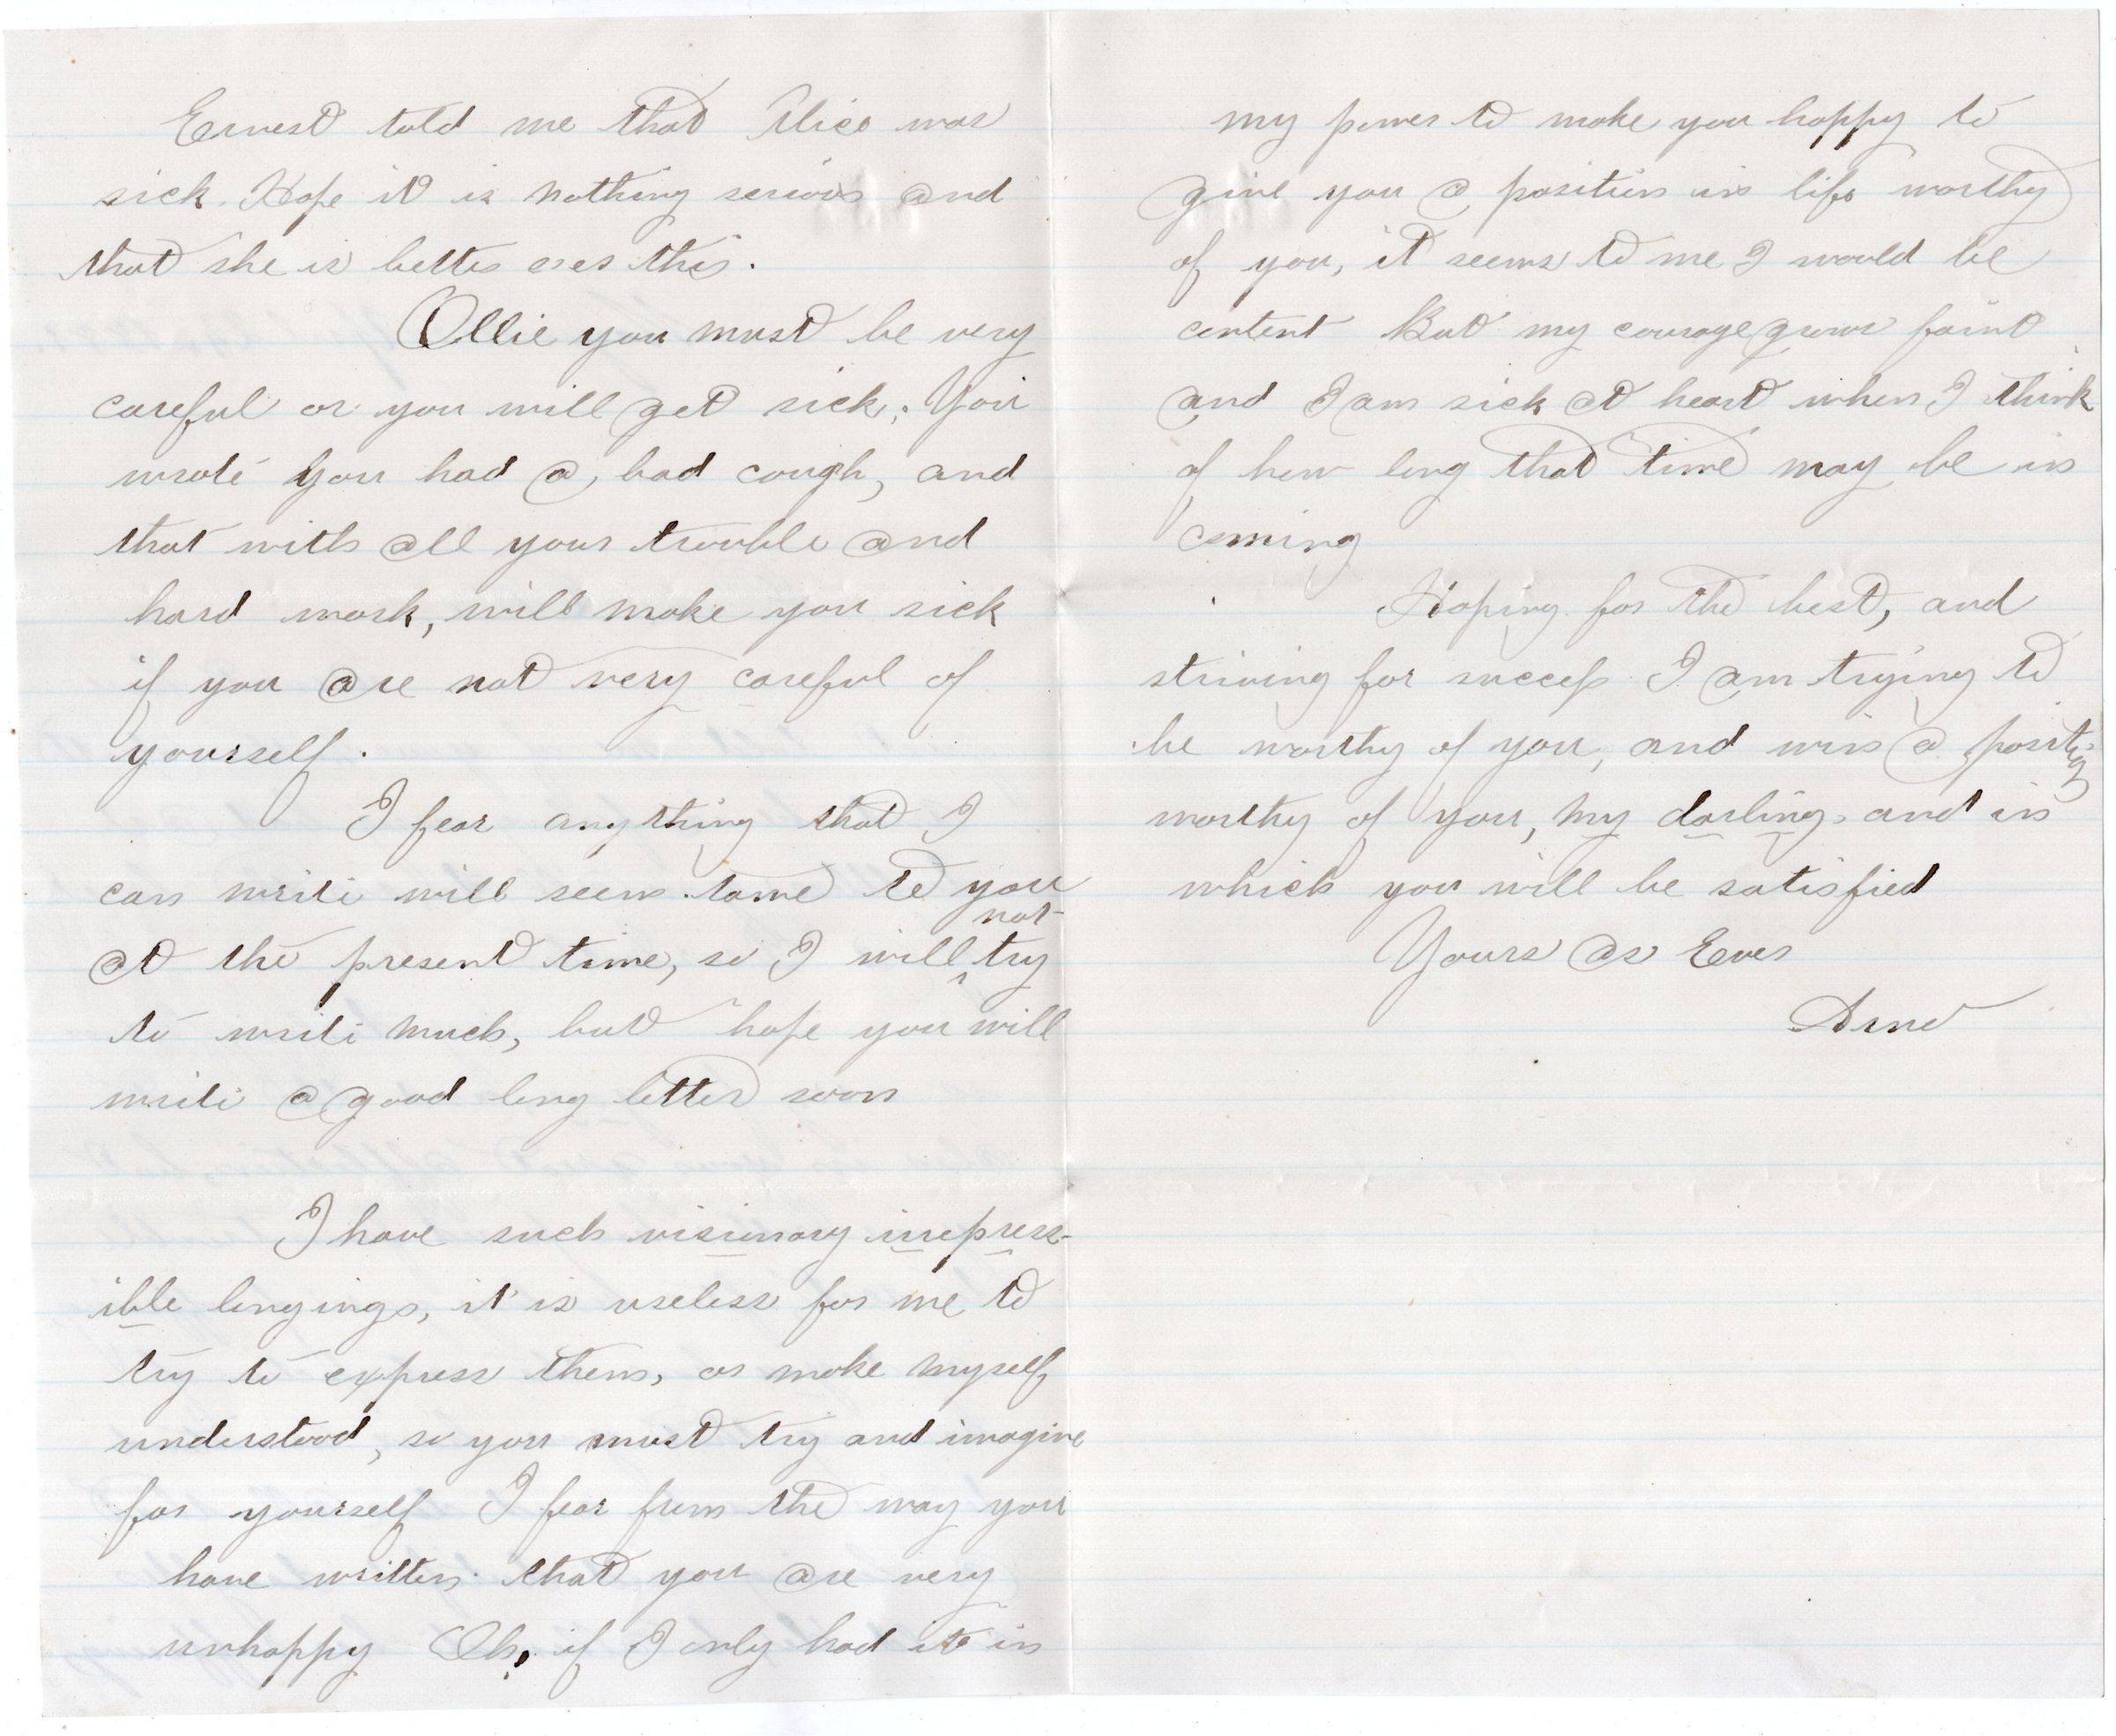 Ernest told me that Alice was
sick. Hope it is nothing serious and
that she is better ere this.
Ollie you must be very
careful or you will get sick. You
wrote you had a bad cough, and
that with all your trouble and
hard work, will make you sick
if you are not very careful of
yourself.
I fear anything that I
can write will seem tame to you
at the present time, so I will not try
to write much, but hope you will
write a good long letter soon
I have such visionary irrepress-
ible longings, it is useless for me to
try to express them, or make myself
understood, so you must try and imagine
for yourself I fear from the way you
have written that you are very
unhappy Oh, if I only had it in
my power to make you happy to
give you a position in life worthy
of you, it seems to me I would be
content But my courage grows faint
and I am sick at heart when I think
of how long that time may be in
coming
Hoping for the best, and
striving for success I am trying to
be worthy of you, and win a position
worthy of you, my darling, and in
which you will be satisfied
Yours as Ever